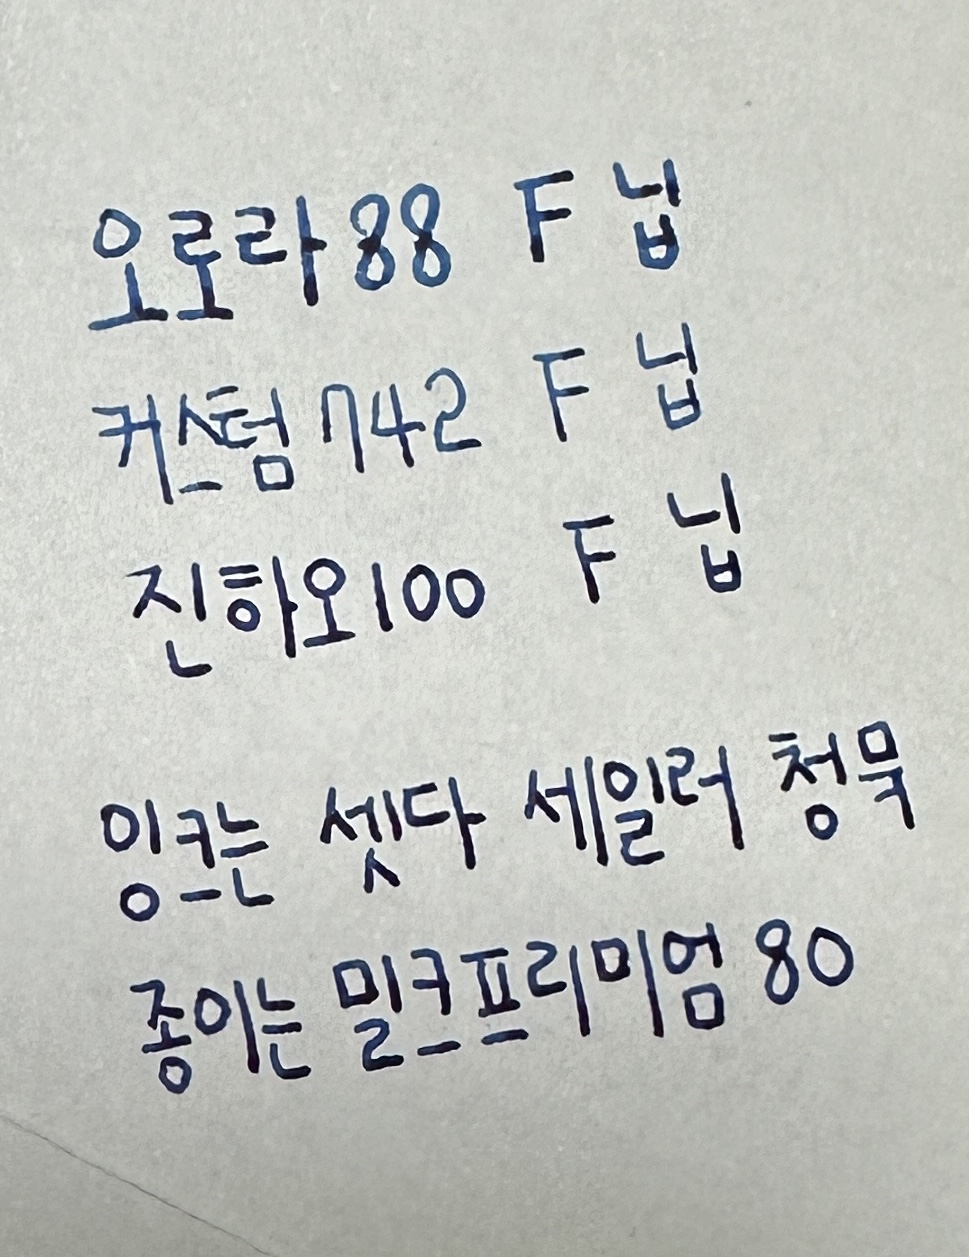 오로라88 F 닙
커스텀742 F 닙
진하오100 F 닙
잉크는 셋다 세일러 청묵
종이는 밀크프리미엄 80